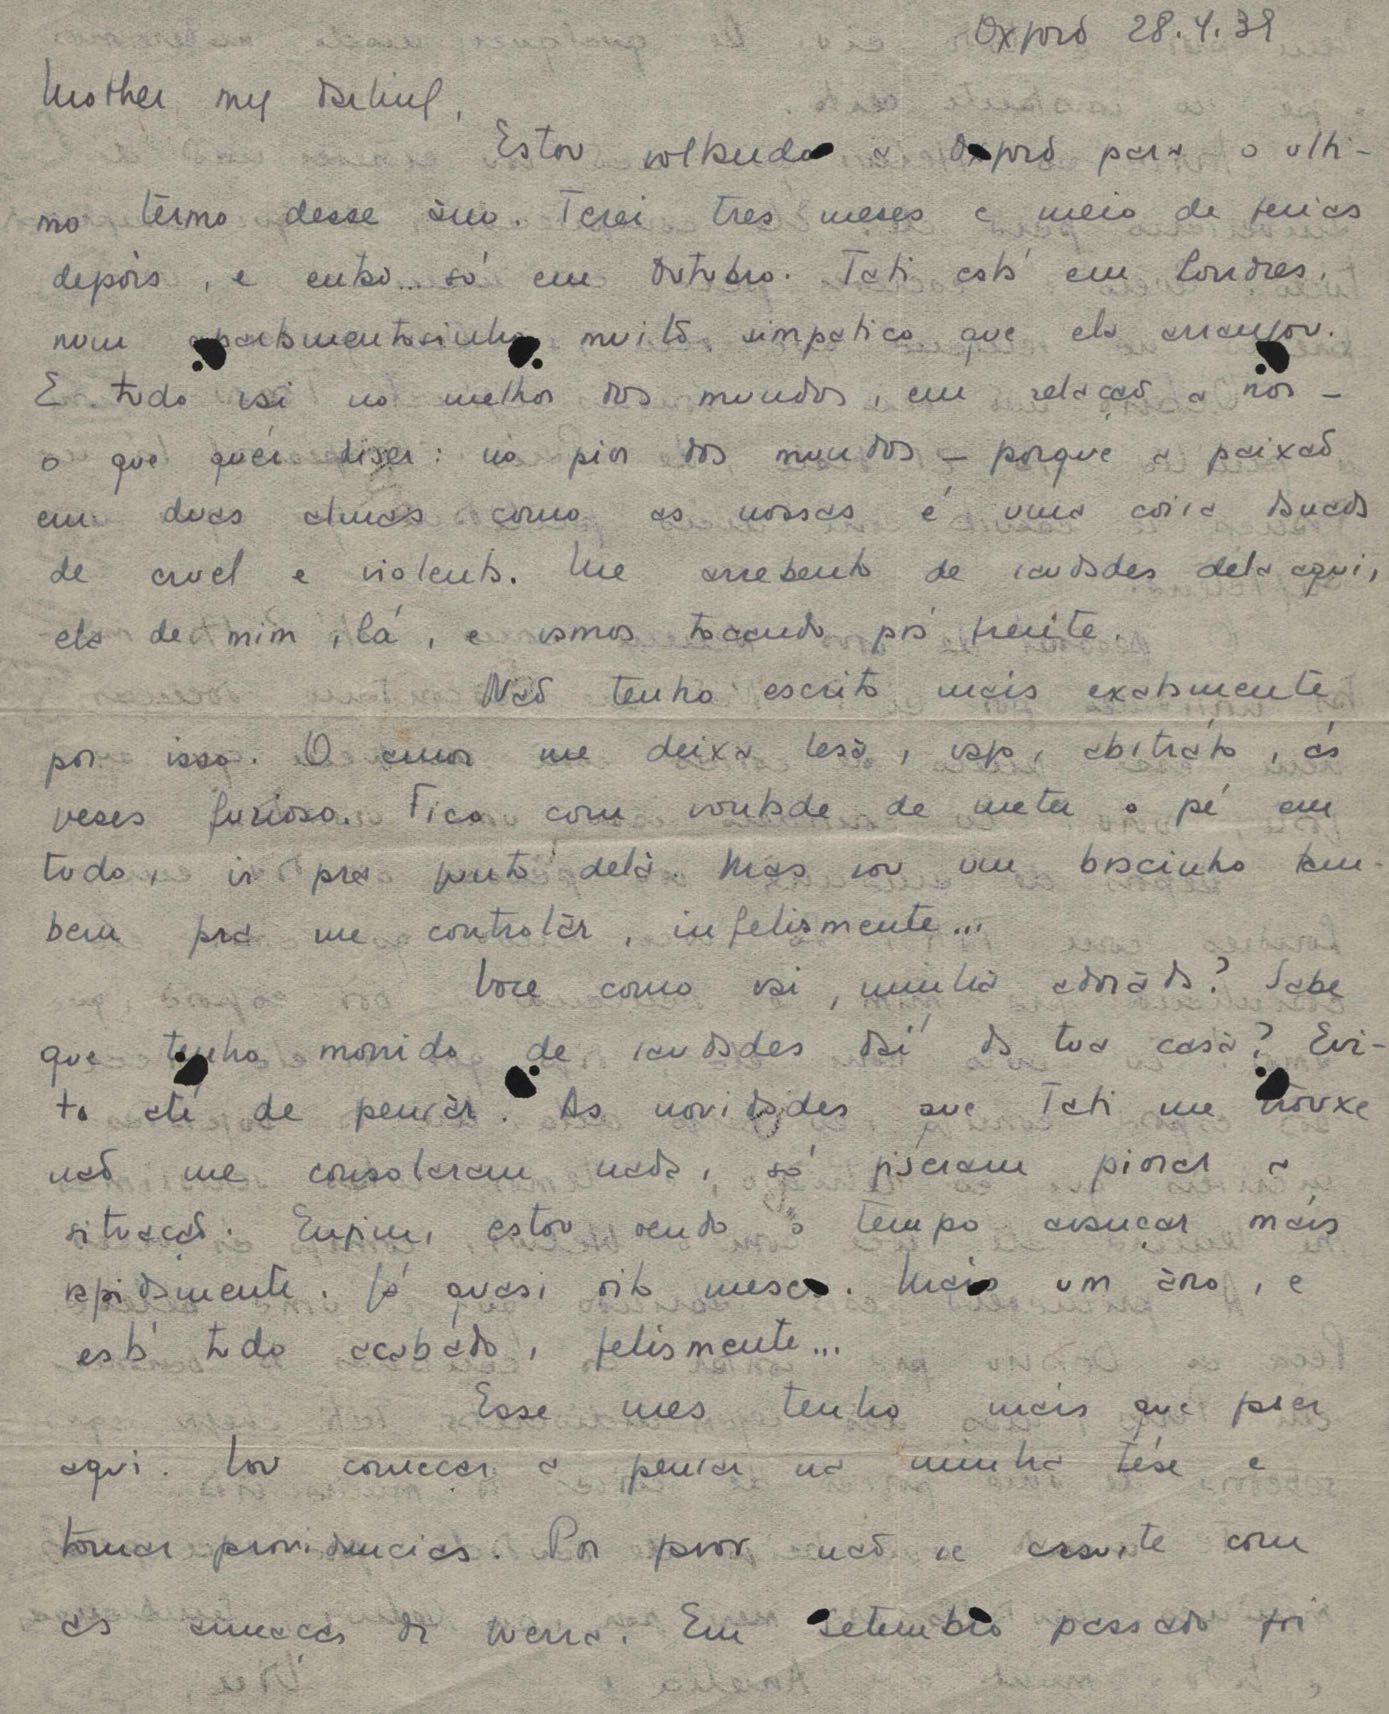 Oxford 28.4.39
Mother my darling,
Estou voltando a Oxford para o ulti-
mo têrmo desse âno. Terei tres meses e meio de ferias
depois, e então... só em Outubro. Tati está em Londres,
num apartamentosinho muito simpatico que ela arranjou.
E tudo vai no melhor dos mundos, em relação a nós –
o que quér diser: no pior dos mundos – porquê a paixão
em duas almas como as nossas é uma coisa danada
de cruel e violenta. Me arrebento de saudades dela aqui,
ela de mim, lá, e vamos tocando prá frente.
Não tenho escrito mais exatamente
por isso. O amor me deixa lesã, vago, abstráto, ás
veses furioso. Fico com vontade de meter o pé em
tudo, ir pra junto dela. Mas sou um bocinho tam-
bem pra me controlár, infelismente...
Voce como vai, minha adorada? Sabe
que tenho morrido de saudades daí da tua casa? Evi-
to até de pensár. As novidades que Tati me trouxe
não me consolaram nada, só fiseram piorar a
situação. Enfim, estou vendo o tempo avançar mais
rapidamente. Já quasi oito meses. Mais um âno, e
está tudo acabádo, felismente...
Esse mes tenho mais que faser
aqui. Vou começar a pensar na minha tése e
tomar providencias. Por favor não se assuste com
as ameaças de guerra. Em setembro passado foi